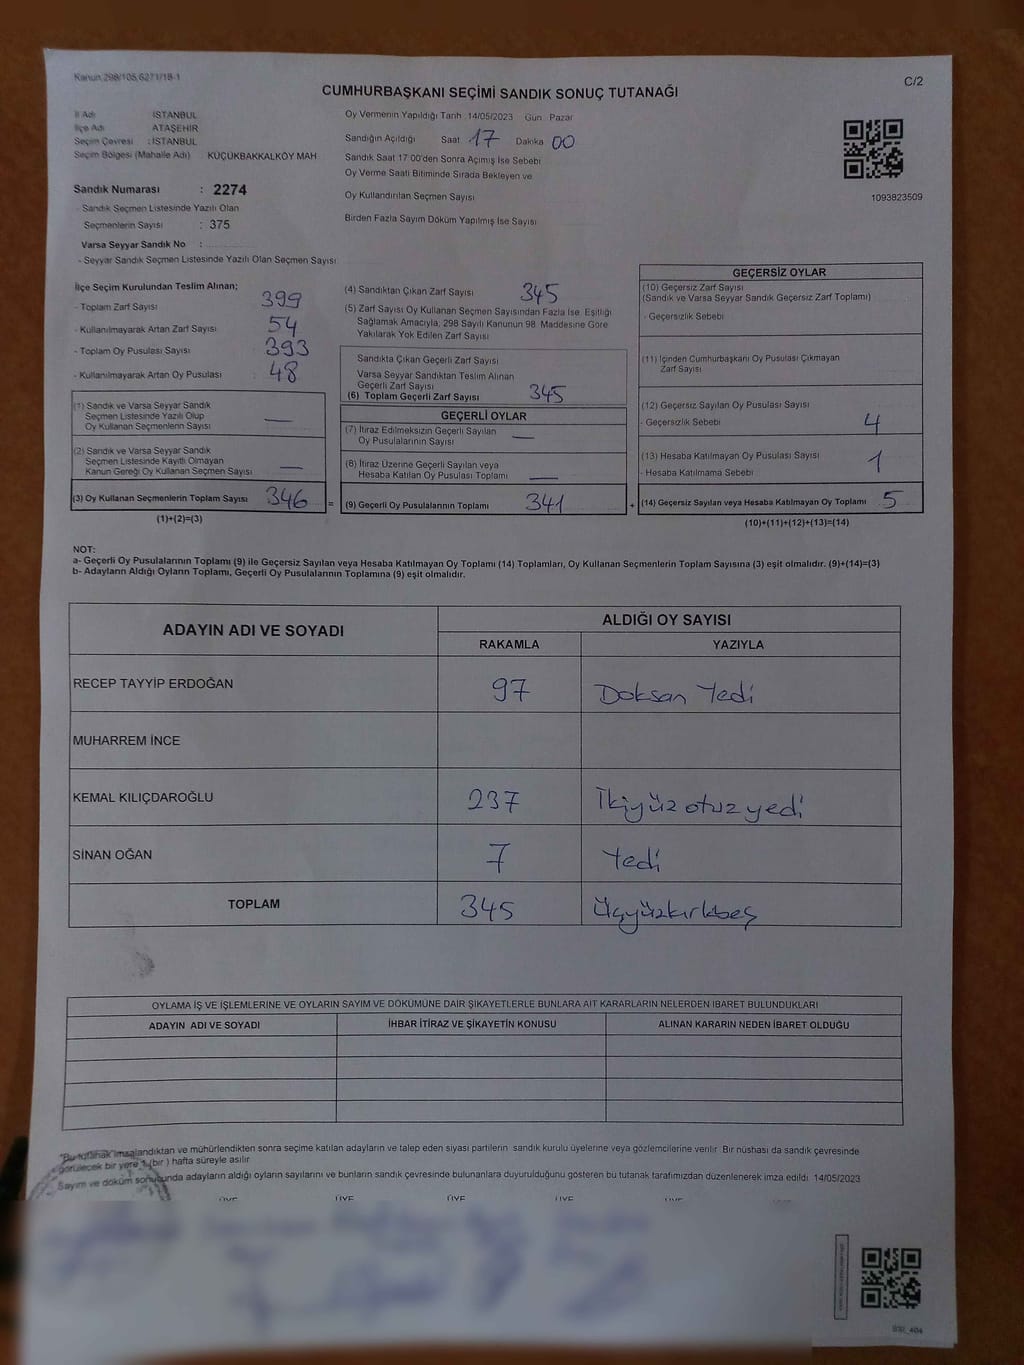 Kanun 298/105,6271/18-1
C/2
CUMHURBAŞKANI SEÇİMİ SANDIK SONUÇ TUTANAĞI
İl Adı İSTANBUL
İlçe Adı ATAŞEHİR
Seçim Çevresi : İSTANBUL
Seçim Bölgesi (Mahalle Adı) KÜÇÜKBAKKALKÖY MAH
Sandık Numarası : 2274
- Sandık Seçmen Listesinde Yazılı Olan
Seçmenlerin Sayısı : 375
Varsa Seyyar Sandık No :
- Seyyar Sandık Seçmen Listesinde Yazılı Olan Seçmen Sayısı
Oy Vermenin Yapıldığı Tarih 14/05/2023 Gün Pazar
Sandığın Açıldığı Saat 17 Dakika 00
Sandık Saat 17:00'den Sonra Açımış İse Sebebi
Oy Verme Saati Bitiminde Sırada Bekleyen ve
Oy Kullandırılan Seçmen Sayısı
Birden Fazla Sayım Döküm Yapılmış İse Sayısı
1093823509
İlçe Seçim Kurulundan Teslim Alınan;
- Toplam Zarf Sayısı 399
- Kullanılmayarak Artan Zarf Sayısı 54
- Toplam Oy Pusulası Sayısı 393
- Kullanılmayarak Artan Oy Pusulası : 48
(1) Sandık ve Varsa Seyyar Sandık
Seçmen Listesinde Yazılı Olup
Oy Kullanan Seçmenlerin Sayısı —
(2) Sandık ve Varsa Seyyar Sandık
Seçmen Listesinde Kayıtlı Olmayan
Kanun Gereği Oy Kullanan Seçmen Sayısı —
(3) Oy Kullanan Seçmenlerin Toplam Sayısı 346 =
(1)+(2)=(3)
(4) Sandıktan Çıkan Zarf Sayısı 345
(5) Zarf Sayısı Oy Kullanan Seçmen Sayısından Fazla İse Eşitliği
Sağlamak Amacıyla, 298 Sayılı Kanunun 98. Maddesine Göre
Yakılarak Yok Edilen Zarf Sayısı
Sandıkta Çıkan Geçerli Zarf Sayısı
Varsa Seyyar Sandıktan Teslim Alınan
Geçerli Zarf Sayısı
(6) Toplam Geçerli Zarf Sayısı 345
GEÇERLİ OYLAR
(7) İtiraz Edilmeksizin Geçerli Sayılan
Oy Pusulalarının Sayısı —
(8) İtiraz Üzerine Geçerli Sayılan veya
Hesaba Katılan Oy Pusulası Toplamı —
(9) Geçerli Oy Pusulalarının Toplamı 341 +
GEÇERSİZ OYLAR
(10) Geçersiz Zarf Sayısı
(Sandık ve Varsa Seyyar Sandık Geçersiz Zarf Toplamı)
- Geçersizlik Sebebi
(11) İçinden Cumhurbaşkanı Oy Pusulası Çıkmayan
Zarf Sayısı
(12) Geçersiz Sayılan Oy Pusulası Sayısı
- Geçersizlik Sebebi 4
(13) Hesaba Katılmayan Oy Pusulası Sayısı
- Hesaba Katılmama Sebebi 1
(14) Geçersiz Sayılan veya Hesaba Katılmayan Oy Toplamı 5
(10)+(11)+(12)+(13)=(14)
NOT:
a- Geçerli Oy Pusulalarının Toplamı (9) ile Geçersiz Sayılan veya Hesaba Katılmayan Oy Toplamı (14) Toplamları, Oy Kullanan Seçmenlerin Toplam Sayısına (3) eşit olmalıdır. (9)+(14)=(3)
b- Adayların Aldığı Oyların Toplamı, Geçerli Oy Pusulalarının Toplamına (9) eşit olmalıdır.
ADAYIN ADI VE SOYADI
ALDIĞI OY SAYISI
RAKAMLA YAZIYLA
RECEP TAYYİP ERDOĞAN 97 Doksan Yedi
MUHARREM İNCE
KEMAL KILIÇDAROĞLU 237 İkiyüz otuz yedi
SİNAN OĞAN 7 Yedi
TOPLAM 345 Üçyüzkırkbeş
OYLAMA İŞ VE İŞLEMLERİNE VE OYLARIN SAYIM VE DÖKÜMÜNE DAİR ŞİKAYETLERLE BUNLARA AİT KARARLARIN NELERDEN İBARET BULUNDUKLARI
ADAYIN ADI VE SOYADI İHBAR İTİRAZ VE ŞİKAYETİN KONUSU ALINAN KARARIN NEDEN İBARET OLDUĞU
"Bu tutanak imzalandıktan ve mühürlendikten sonra seçime katılan adayların ve talep eden siyasi partilerin sandık kurulu üyelerine veya gözlemcilerine verilir. Bir nüshası da sandık çevresinde
görülecek bir yere 1 (bir) hafta süreyle asılır.
Sayım ve döküm sonucunda adayların aldığı oyların sayılarını ve bunların sandık çevresinde bulunanlara duyurulduğunu gösteren bu tutanak tarafımızdan düzenlenerek imza edildi 14/05/2023
ÜYE ÜYE ÜYE ÜYE ÜYE